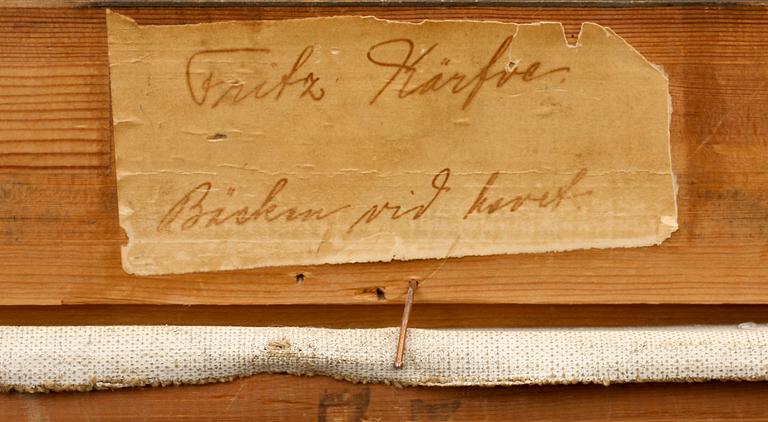 Fritz Kärfve.
Bäcken vid havet.